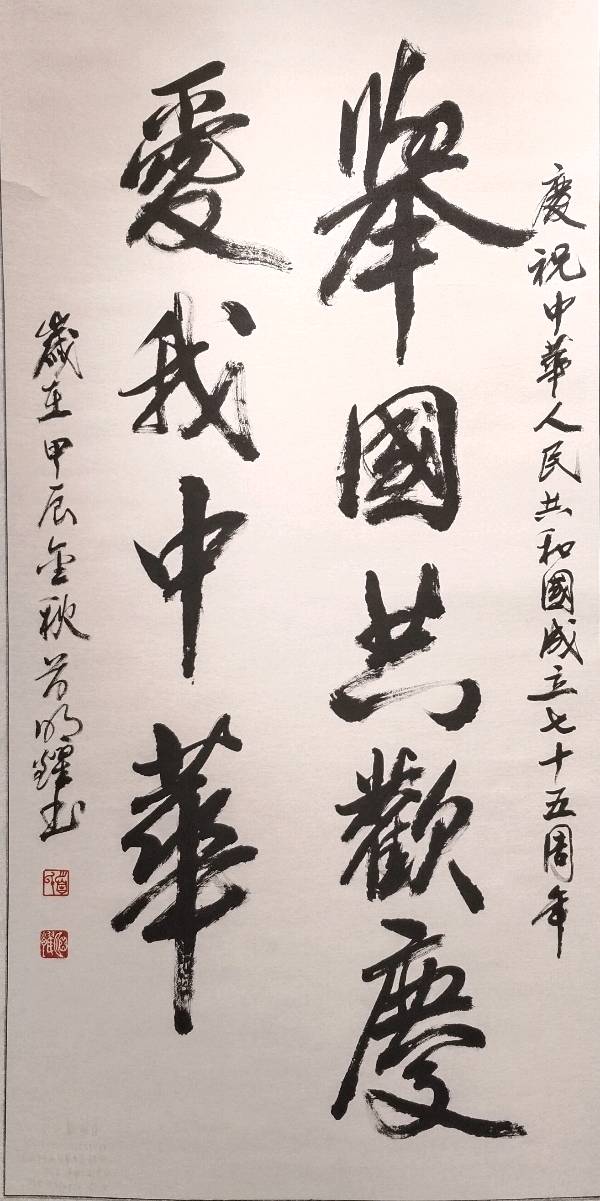 慶祝中華人民共和國成立七十五周年
舉國共歡慶
愛我中華
歲在甲辰金秋